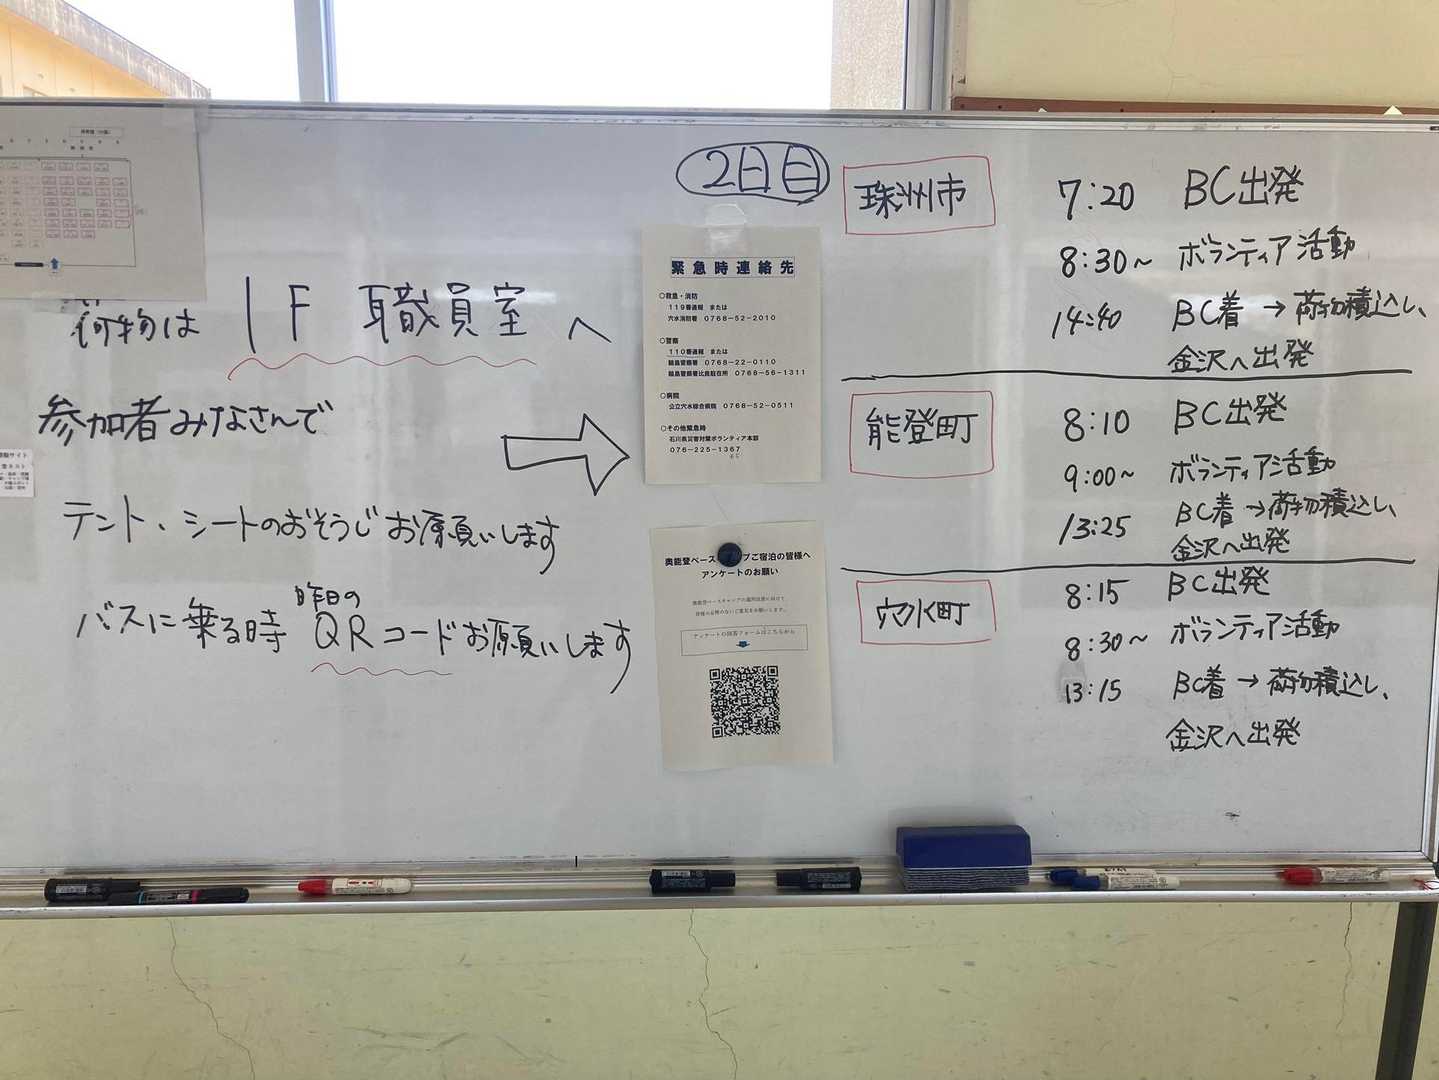 荷物は 1F 職員室 へ
参加者みなさんで
テント、シートのおそうじお願いします
バスに乗る時 昨日の QRコードお願いします
2日目
緊急時連絡先
○救急・消防
119番通報 または
穴水消防署 0768-52-2010
○警察
110番通報 または
輪島警察署 0768-22-0110
輪島警察署比良駐在所 0768-56-1311
○病院
公立穴水総合病院 0768-52-0511
○その他緊急時
石川県災害対策ボランティア本部
076-225-1367
奥能登ベース プご宿泊の皆様へ
アンケートのお願い
アンケートの回答フォームはこちらから
珠洲市
7:20 BC出発
8:30～ ボランティア活動
14:40 BC着 → 荷物積込し、
金沢へ出発
能登町
8:10 BC出発
9:00～ ボランティア活動
13:25 BC着 → 荷物積込し、
金沢へ出発
穴水町
8:15 BC出発
8:30～ ボランティア活動
13:15 BC着 → 荷物積込し、
金沢へ出発